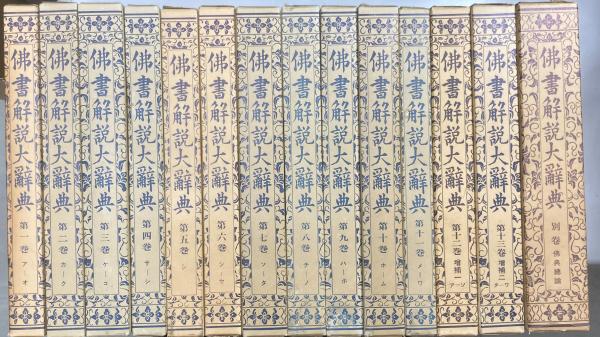 佛書解説大辭典 第一巻 ア－オ
佛書解説大辭典 第二巻 カ－ク
佛書解説大辭典 第三巻 ケ－コ
佛書解説大辭典 第四巻 サ－シ
佛書解説大辭典 第五巻
佛書解説大辭典 第六巻
佛書解説大辭典 第七巻
佛書解説大辭典 第八巻
佛書解説大辭典 第九巻 ハ－ホ
佛書解説大辭典 第十巻 ホ－ム
佛書解説大辭典 第十一巻 メ－ワ
佛書解説大辭典 第十二巻 増補一 ア－ソ
佛書解説大辭典 第十三巻 増補二 タ－ワ
佛書解説大辭典 別巻 佛典總論